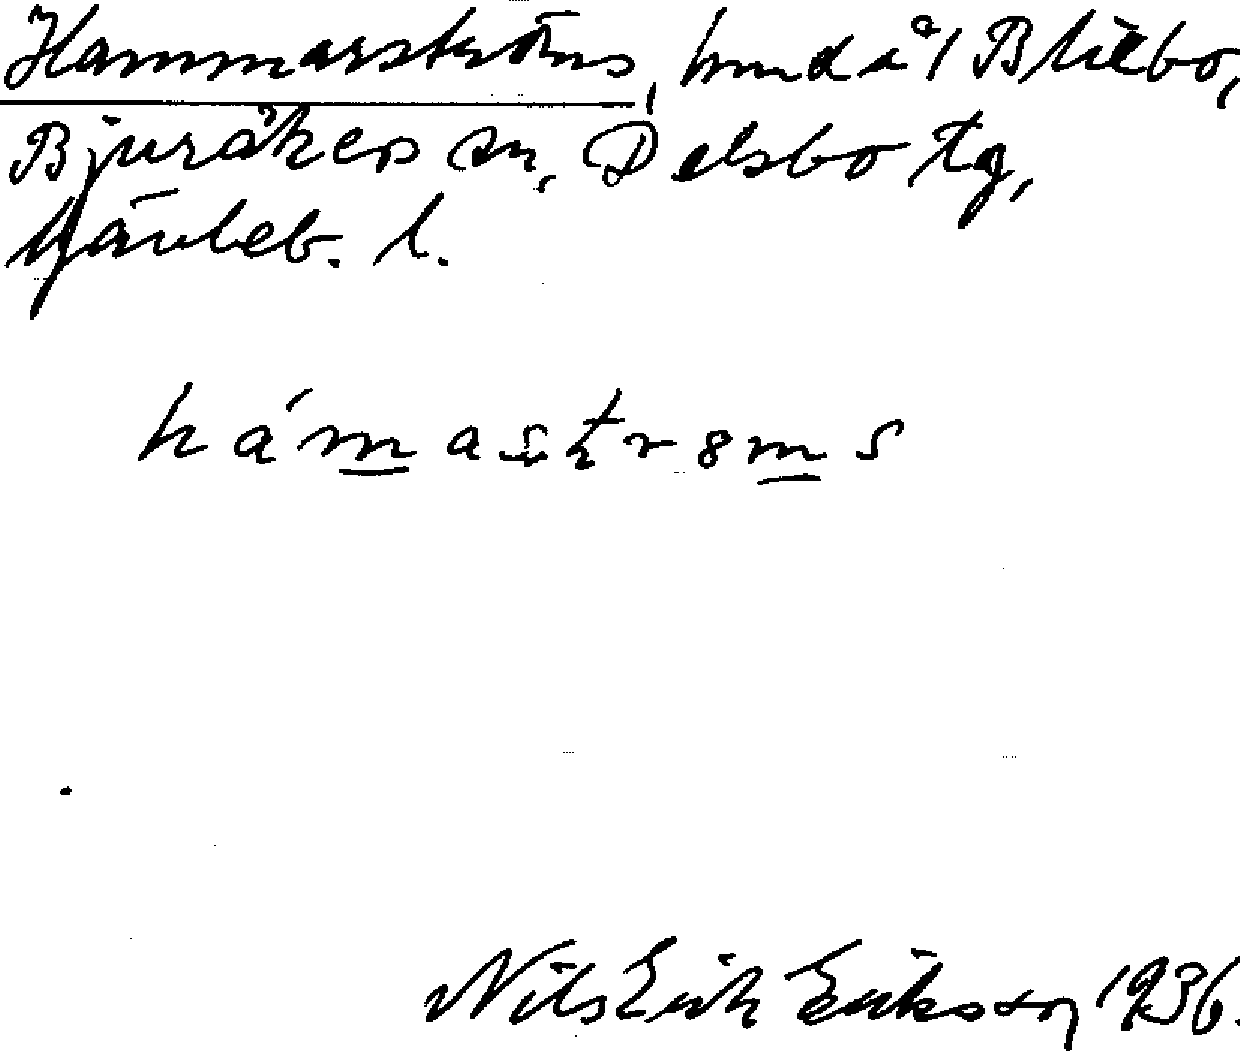 Hammarströms, hmd i Blibo,
Bjuråkers sn, Delsbo tg,
Gävleb. l.
hámastrɵms
Nils Erik Eriksson 1936.